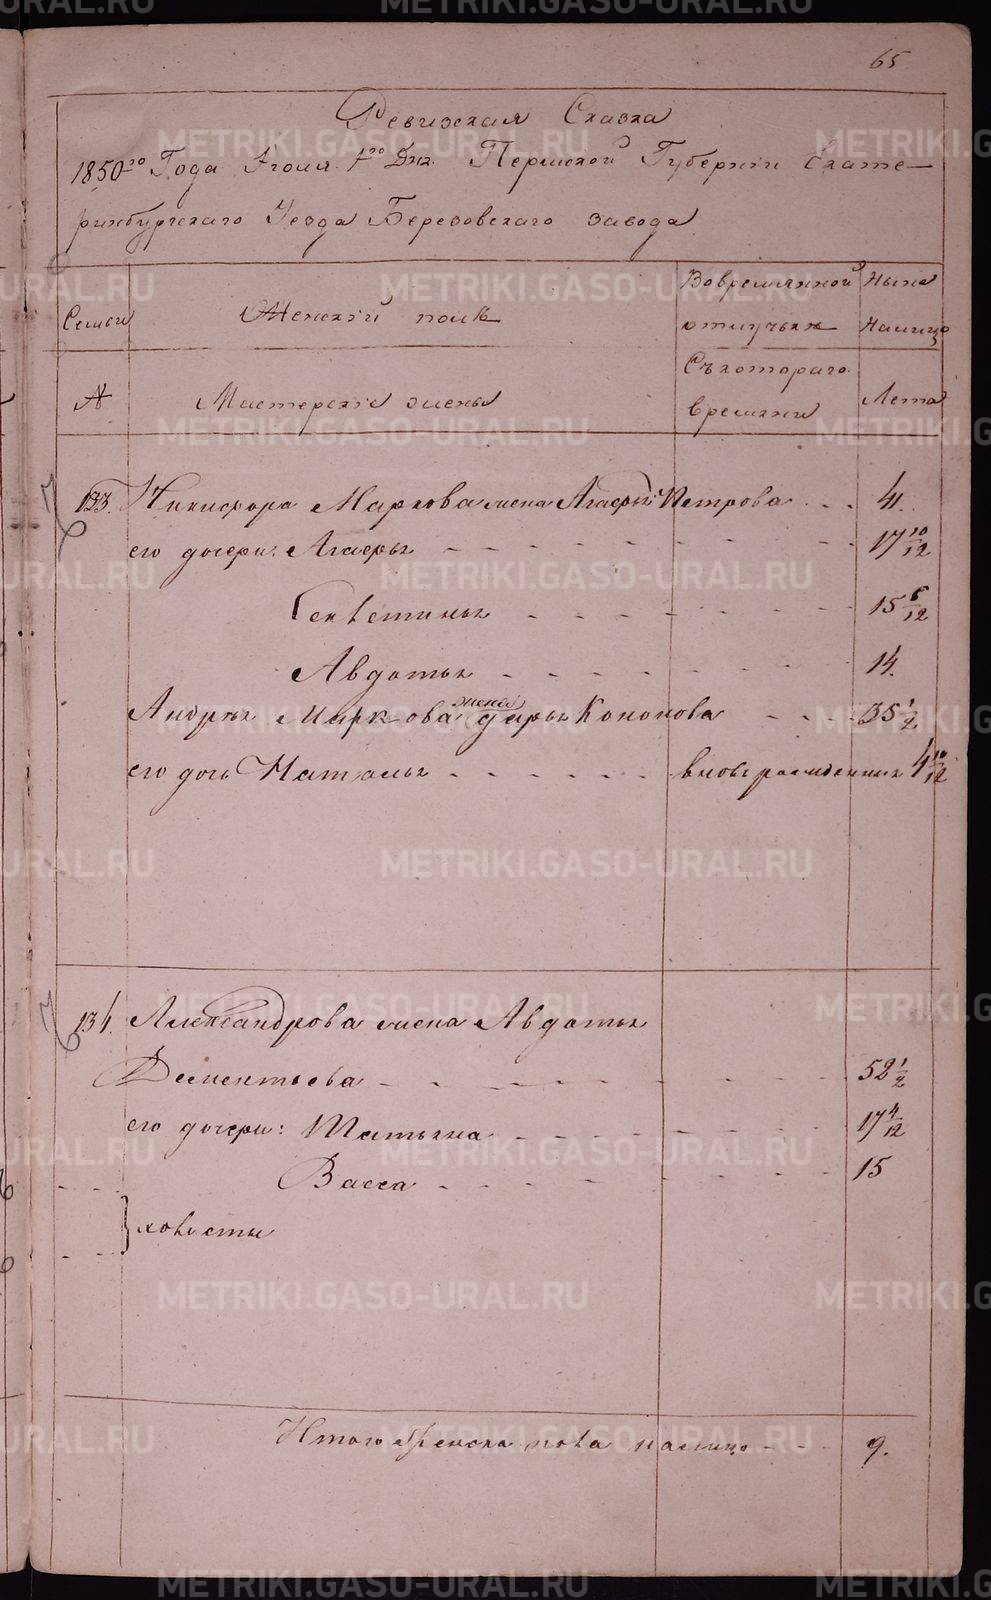 65
Ревизская Сказка
1850го Года Июля 1го Дня. Пермской Губернии Екате-
ринбургскаго Уезда Березовскаго завода
Семьи
Женскій полъ
Вовремянной
отлучьки
Ныне
Налицо
№
Мастерскіе жены
Съкотораго
времяни
Лета
133. Никифора Маркова жена Агафья Петрова 41.
его дочери: Агафья 17 10/12
Секлетинья 15 6/12
Авдотья 14.
Андрея Маркова жена дарья Кононова 35 1/2
его дочь Наталья вновьрожденная 4 10/12
134. Александрова жена Авдотья
Дементьева 52 1/2
его дочери: Татьяна 17 4/12
Васса 15
холосты
Итого женска пола налицо 9.
METRIKI.GASO-URAL.RU